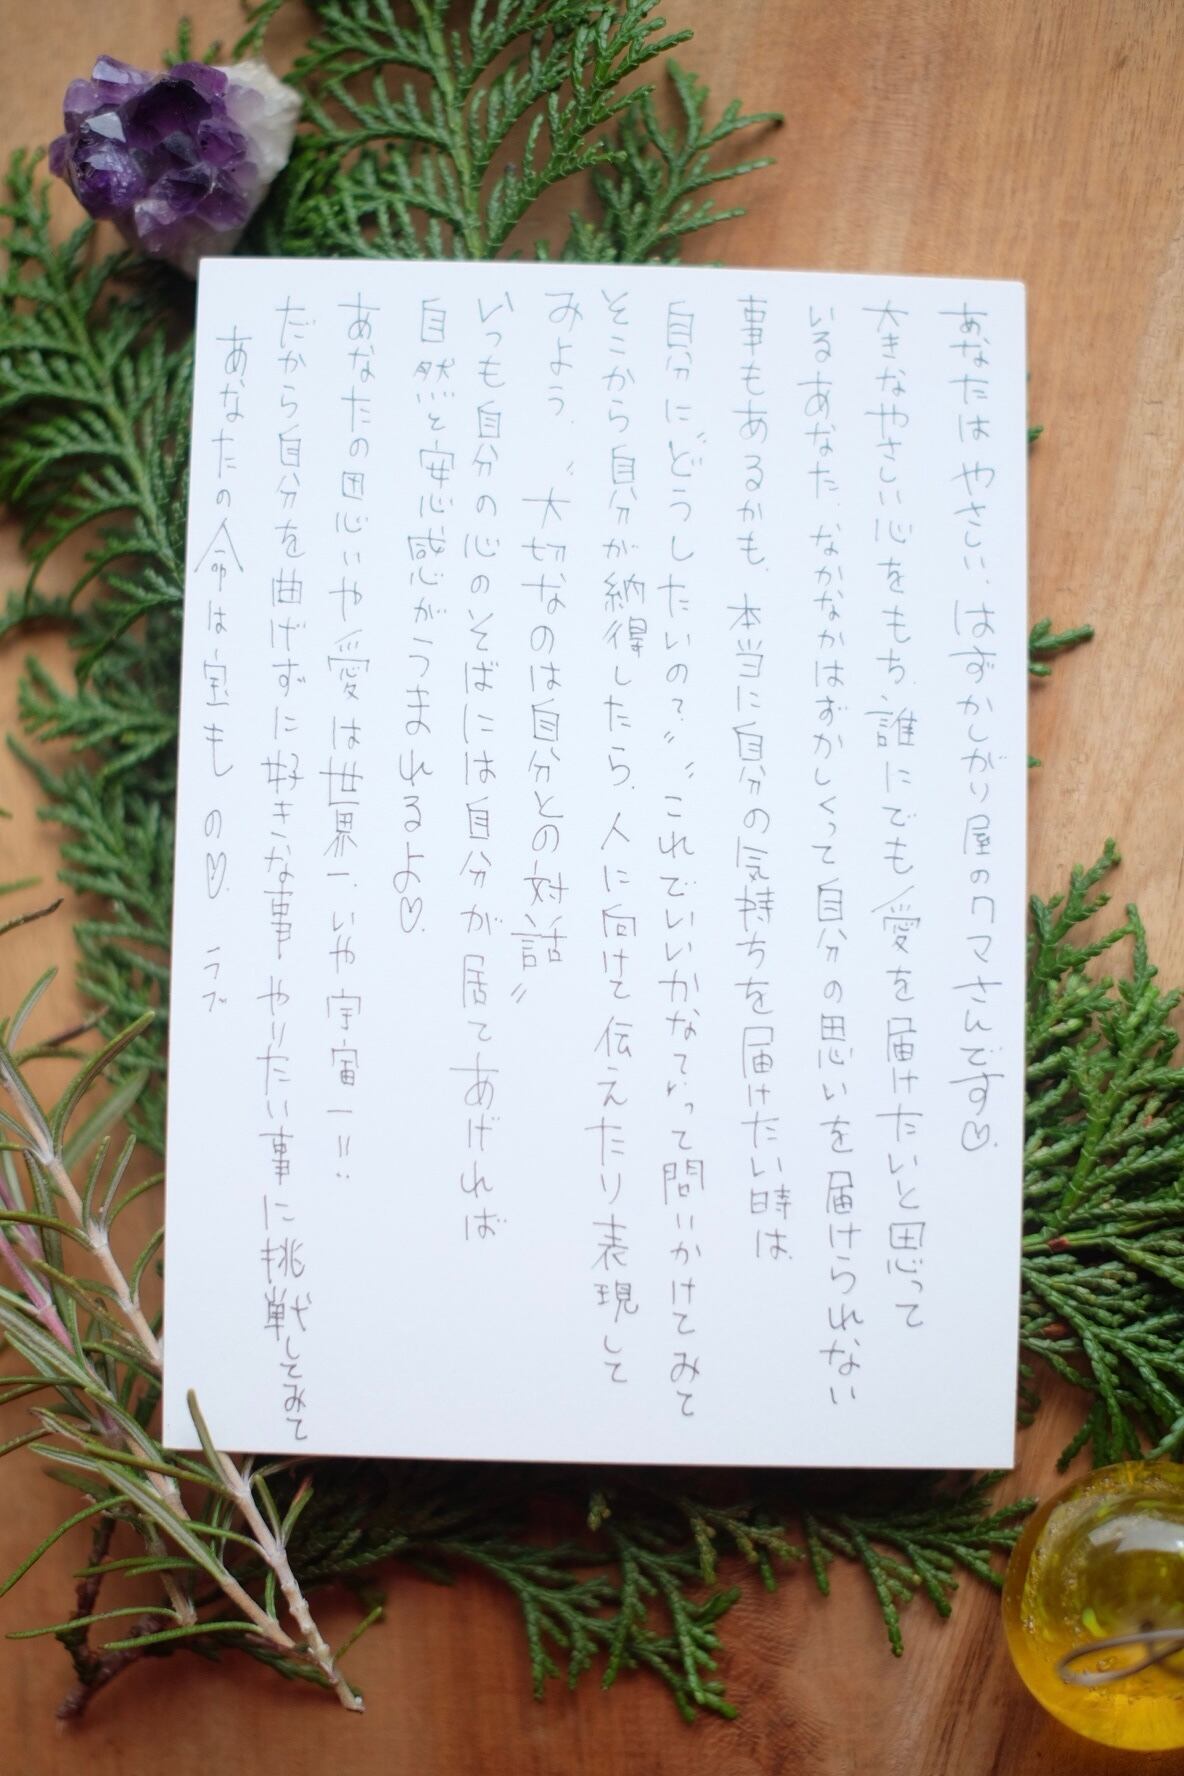 あなたはやさしい、はずかしがり屋のクマさんです♡.
大きなやさしい心をもち、誰にでも愛を届けたいと思って
いるあなた、なかなかはずかしくって自分の思いを届けられない
事もあるかも、本当に自分の気持ちを届けたい時は、
自分に〝どうしたいの?〟〝これでいいかなて〟って問いかけてみて
そこから自分が納得したら、人に向けて伝えたり表現して
みよう、〝大切なのは自分との対話〟
いつも自分の心のそばには自分が居てあげれば
自然と安心感がうまれるよ♡.
あなたの思いや愛は世界一、いや宇宙一!!
だから自分を曲げずに好きな事やりたい事に挑戦してみて
あなたの命は宝もの♡. ラブ